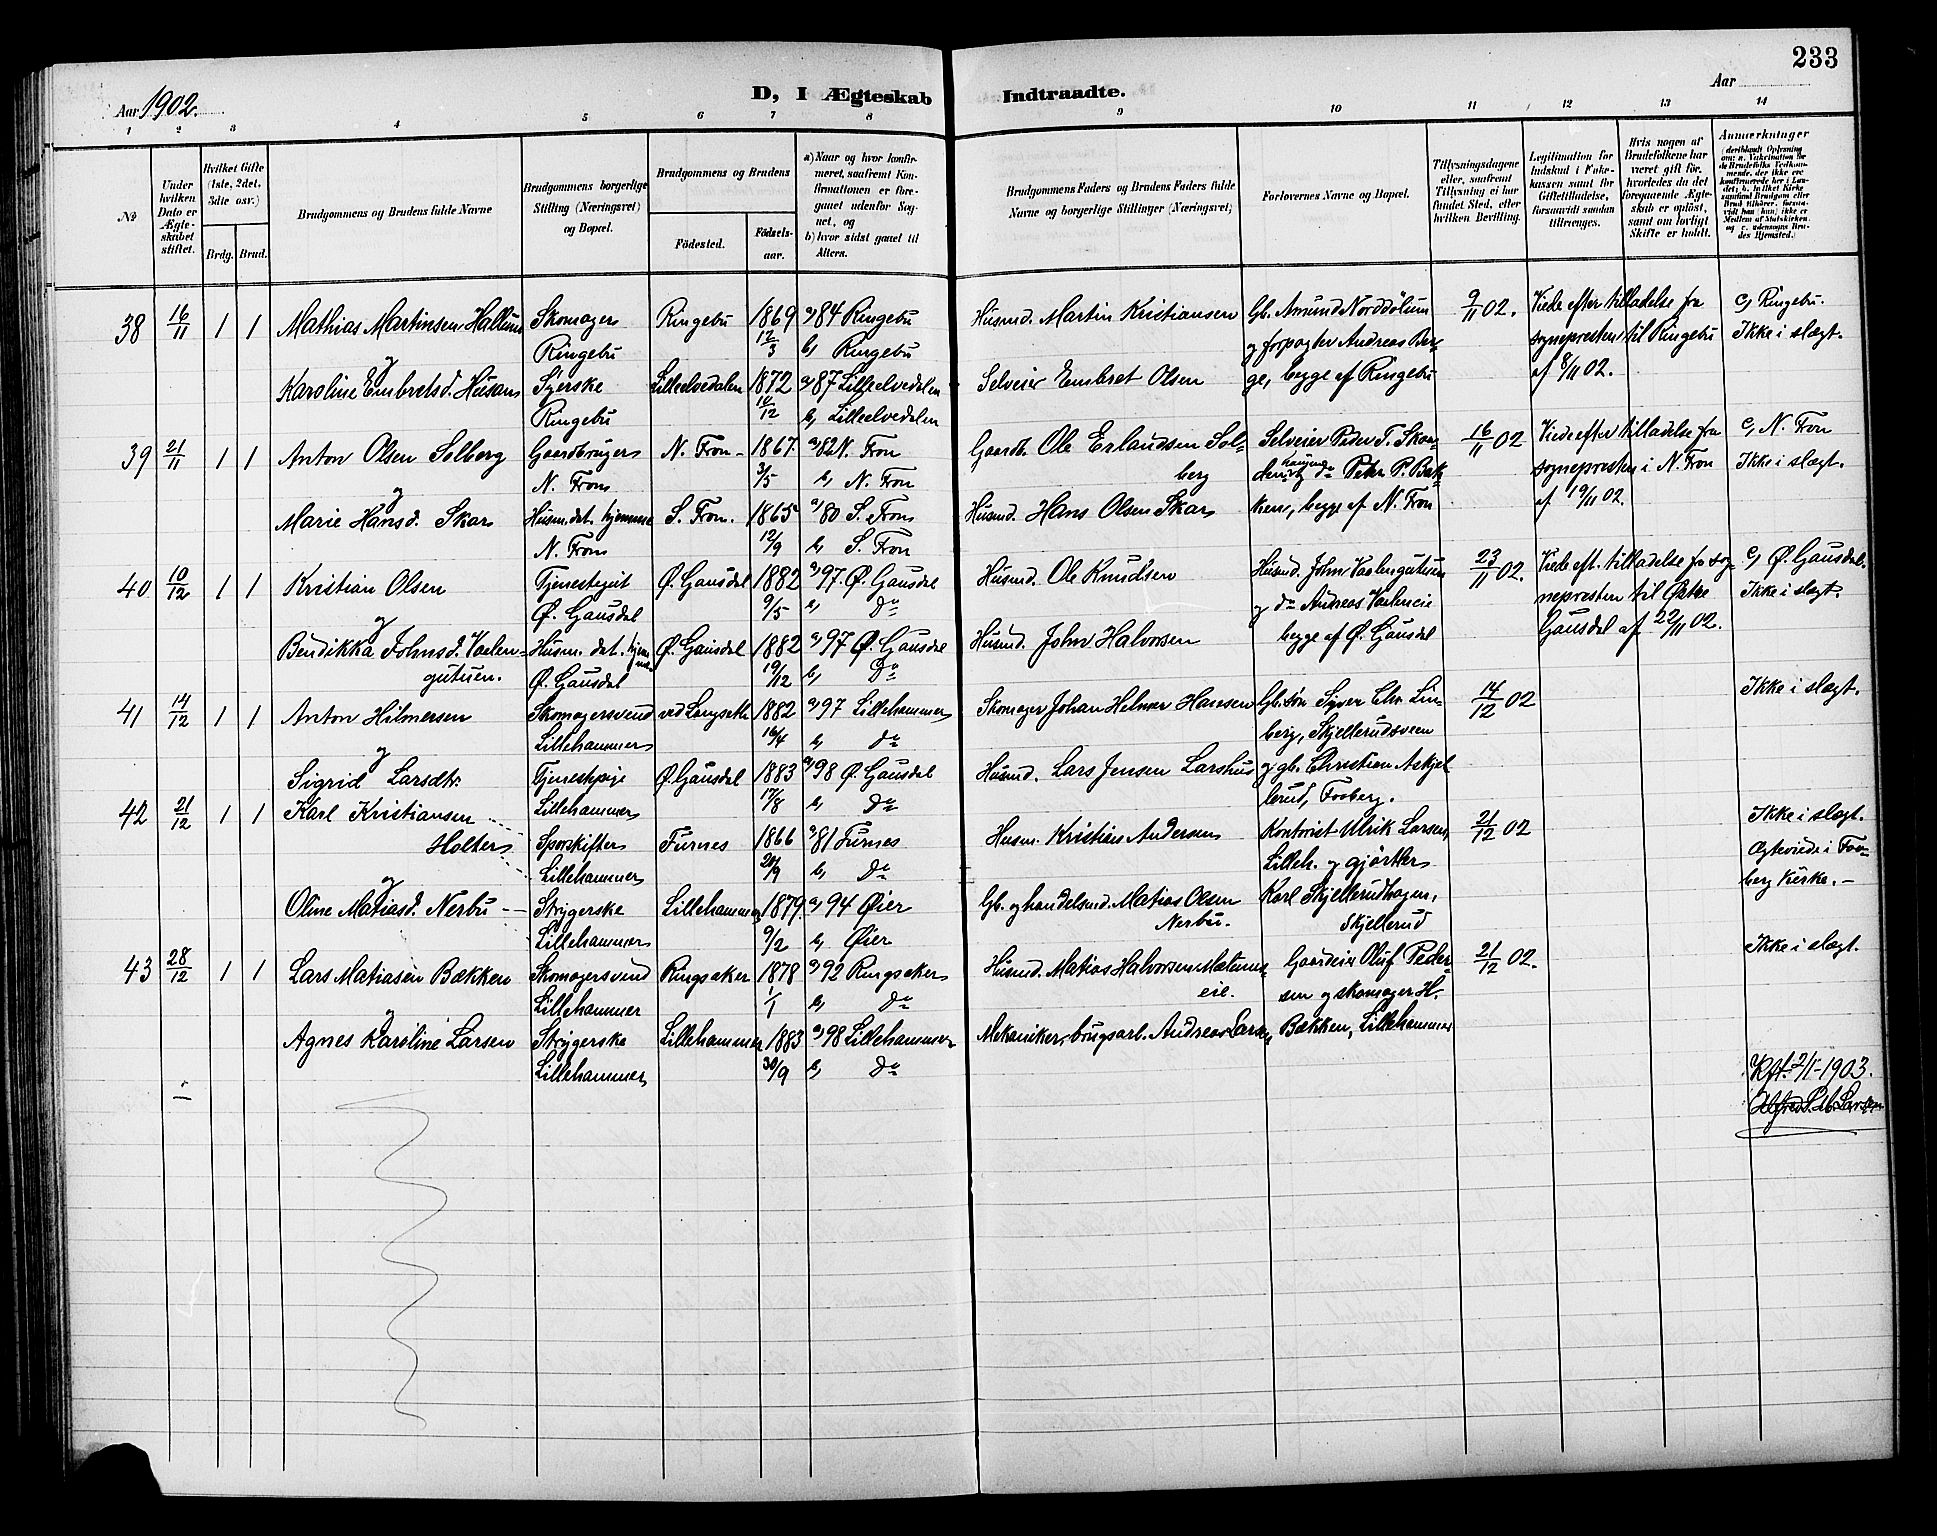 233
Aar 1902.
D, I Ægteskab Indtraadte.
Aar
1 2 3 4 5 6 7 8 9 10 11 12 13 14
No
Under hvilken Dato er Ægteskabet stiftet.
Hvilket Gifte (1ste, 2det, 3die osv.)
Brdg. Brud.
Brudgommens og Brudens fulde Navne
Brudgommens borgerlige Stilling (Næringsvei) og Bopæl.
Brudgommens og Brudens
Födested.
Födselsaar.
a) Naar og hvor konfirmeret, saafremt Konfirmationen er foregaaet udenfor Sognet, og
b) hvor sidst gaaet til Alters.
Brudgommens Faders og Brudens Faders fulde Navne og borgerlige Stillinger (Næringsvei)
Forlovernes Navne og Bopæl.
Tillysningsdagene eller, saafremt Tillysning ei har fundet Sted, efter hvilken Bevilling.
Legitimation for Indskud i Enkekassen samt for Giftetilladelse, forsaavidt saadan tiltrænges.
Hvis nogen af Brudefolkene har været gift för, hvorledes da det foregaaende Ægteskab er oplöst, samt om lovligt Skifte er holdt.
Anmærkninger
38 16/11 1 1 Mathias Martinsen Hallum Skomager Ringebu 1869 a) 84 Ringebu Husmd. Martin Kristiansen Gb. Amund Norddölum 9/11 02. Viede efter tilladelse fra c) Ringebu.
Ringebu 12/3 b) Ringebu og forpagter Andreas Ber- sognepresten til Ringebu Ikke i slægt.
og
Karoline Embretsd. Husom Syerske Lilleelvedalen 1872 a) 87 Lilleelvedalen Selveier Embret Olsen ge, begge af Ringebu af 8/11 02.
Ringebu b) Lilleelvedalen
39 21/11 1 1 Anton Olsen Solberg Gaardbruger N. Fron 1867 a) 82 N. Fron Gaardb. Ole Erlandsen Sol- Selveier Peder T. Skon- 16/11 02 Viede efter tilladelse fra c) N. Fron
N. Fron 3/5 b) N. Fron berg Peter P. Bak- sognepresten i N. Fron Ikke i slægt.
og
Marie Hansd. Skar Husm.dat. hjemme S. Fron. 1865 a) 80 S. Fron Husmd. Hans Olsen Skar ken, begge af N. Fron af 19/11 02.
N. Fron 12/9 b) S. Fron
40 10/12 1 1 Kristian Olsen Tjenestegut Ø. Gausdal 1882 a) 97 Ø. Gausdal Husmd. Ole Knudsen Husmd. John Vaalengutuen 23/11 02. Viede eft. tilladelse fra sog- c) Ø. Gausdal.
Ø. Gausdal 9/5 b) Do og do Andreas nepresten til Østre Ikke i slægt.
og
Bendikka Johnsd. Vaalen- Husm. dat. hjemme Ø. Gausdal 1882 a) 97 Ø. Gausdal Husmd. John Halvorsen begge af Ø. Gausdal Gausdal af 22/11 02.
gutuen. Ø. Gausdal 19/12 b) Do
41 14/12 1 1 Anton Hilmersen Skomagersvend ved Langseth 1882 a) 97 Lillehammer Skomager Johan Helmer Hansen Gb.sön Syver Chr. Lin- 14/12 02 Ikke i slægt.
Lillehammer 16/4 b) do berg, Skjellerudsveen
og
Sigrid Larsdtr. Tjenestepige Ø. Gausdal 1883 a) 98 Ø. Gausdal Husmd. Lars Jensen Larshus og gb. Christian Askjel
Lillehammer 17/8 b) Do lerud, Faaberg.
42 21/12 1 1 Karl Kristiansen
Holter Sporskifter Furnes 1866 a) 81 Furnes Husm. Kristian Andersen Kontorist Ulrik Larsen, 21/12 02 Ikke i slægt.
Lillehammer 20/9 b) Do Lilleh. og gjörtler Ægteviede i Faa-
og
Oline Matiasd. Nerbu Strygerske Lillehammer 1879 a) 94 Øier Gb. og handelsmd. Matias Olsen Karl Skjellerudhagen, berg Kirke.
Lillehammer 9/2 b) Øier Nerbu. Skjellerud
43 28/12 1 1 Lars Matiasen Bækken Skomagersvend Ringsaker 1878 a) 92 Ringsaker Husmd. Matias Halvorsen Gaardeier Oluf Peder- 21/12 02. Ikke i slægt.
Lillehammer 1/1 b) Do eie. sen og skomager H.
og
Agnes Karoline Larsen Strygerske Lillehammer 1883 a) 98 Lillehammer Mekaniker, brugsarb. Andreas Larsen Bækken, Lillehammer
Lillehammer 30/9 b) Do
Kft. 2/1-1903.